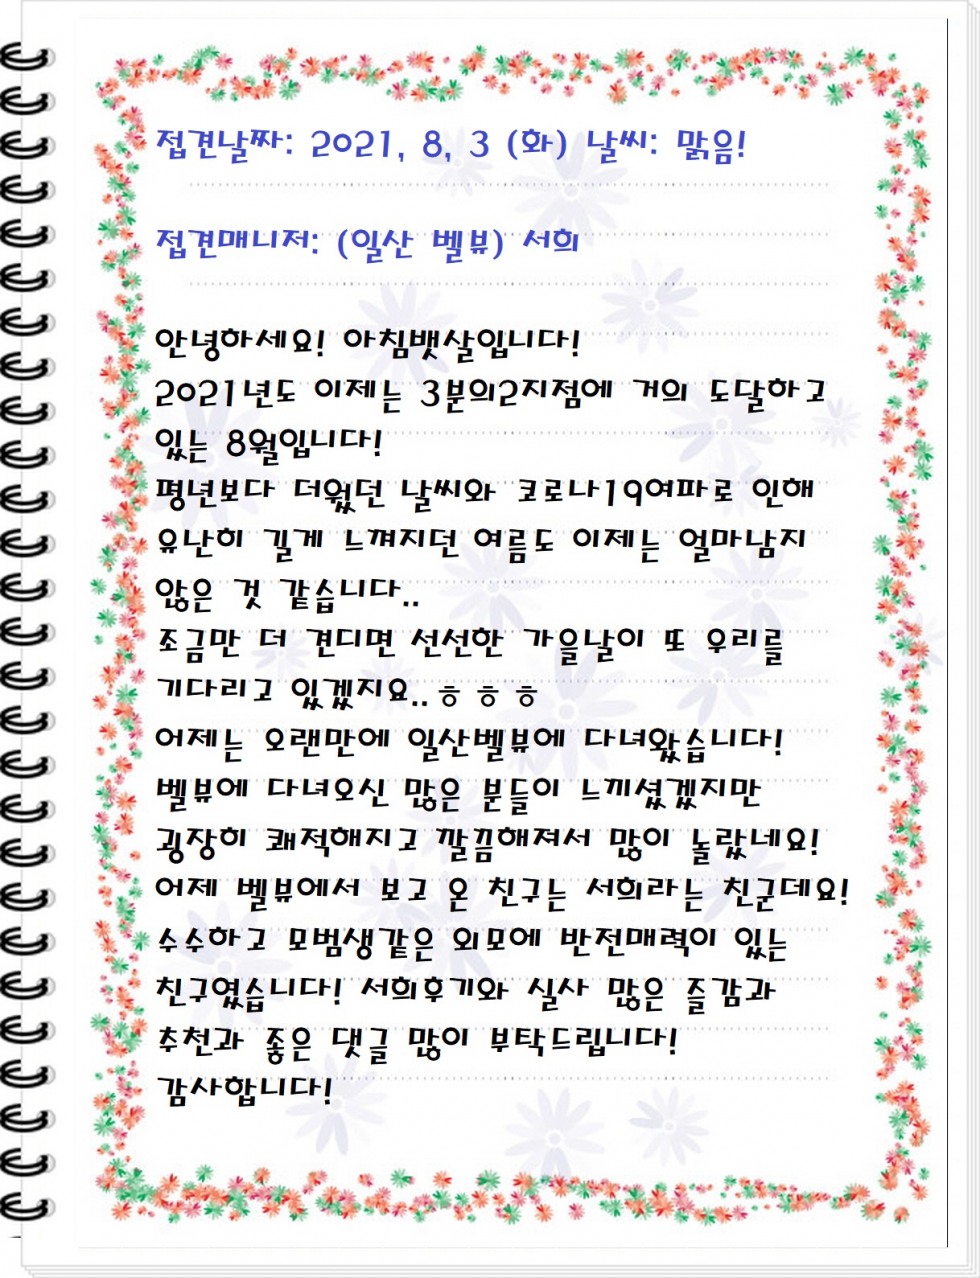 접견날짜: 2021, 8, 3 (화) 날씨: 맑음!
접견매니저: (일산 벨뷰) 서희
안녕하세요! 아침뱃살입니다!
2021년도 이제는 3분의2지점에 거의 도달하고
있는 8월입니다!
평년보다 더웠던 날씨와 코로나19여파로 인해
유난히 길게 느껴지던 여름도 이제는 얼마남지
않은 것 같습니다..
조금만 더 견디면 선선한 가을날이 또 우리를
기다리고 있겠지요..ㅎㅎㅎ
어제는 오랜만에 일산벨뷰에 다녀왔습니다!
벨뷰에 다녀오신 많은 분들이 느끼셨겠지만
굉장히 쾌적해지고 깔끔해져서 많이 놀랐네요!
어제 벨뷰에서 보고 온 친구는 서희라는 친군데요!
수수하고 모범생같은 외모에 반전매력이 있는
친구였습니다! 서희후기와 실사 많은 즐감과
추천과 좋은 댓글 많이 부탁드립니다!
감사합니다!